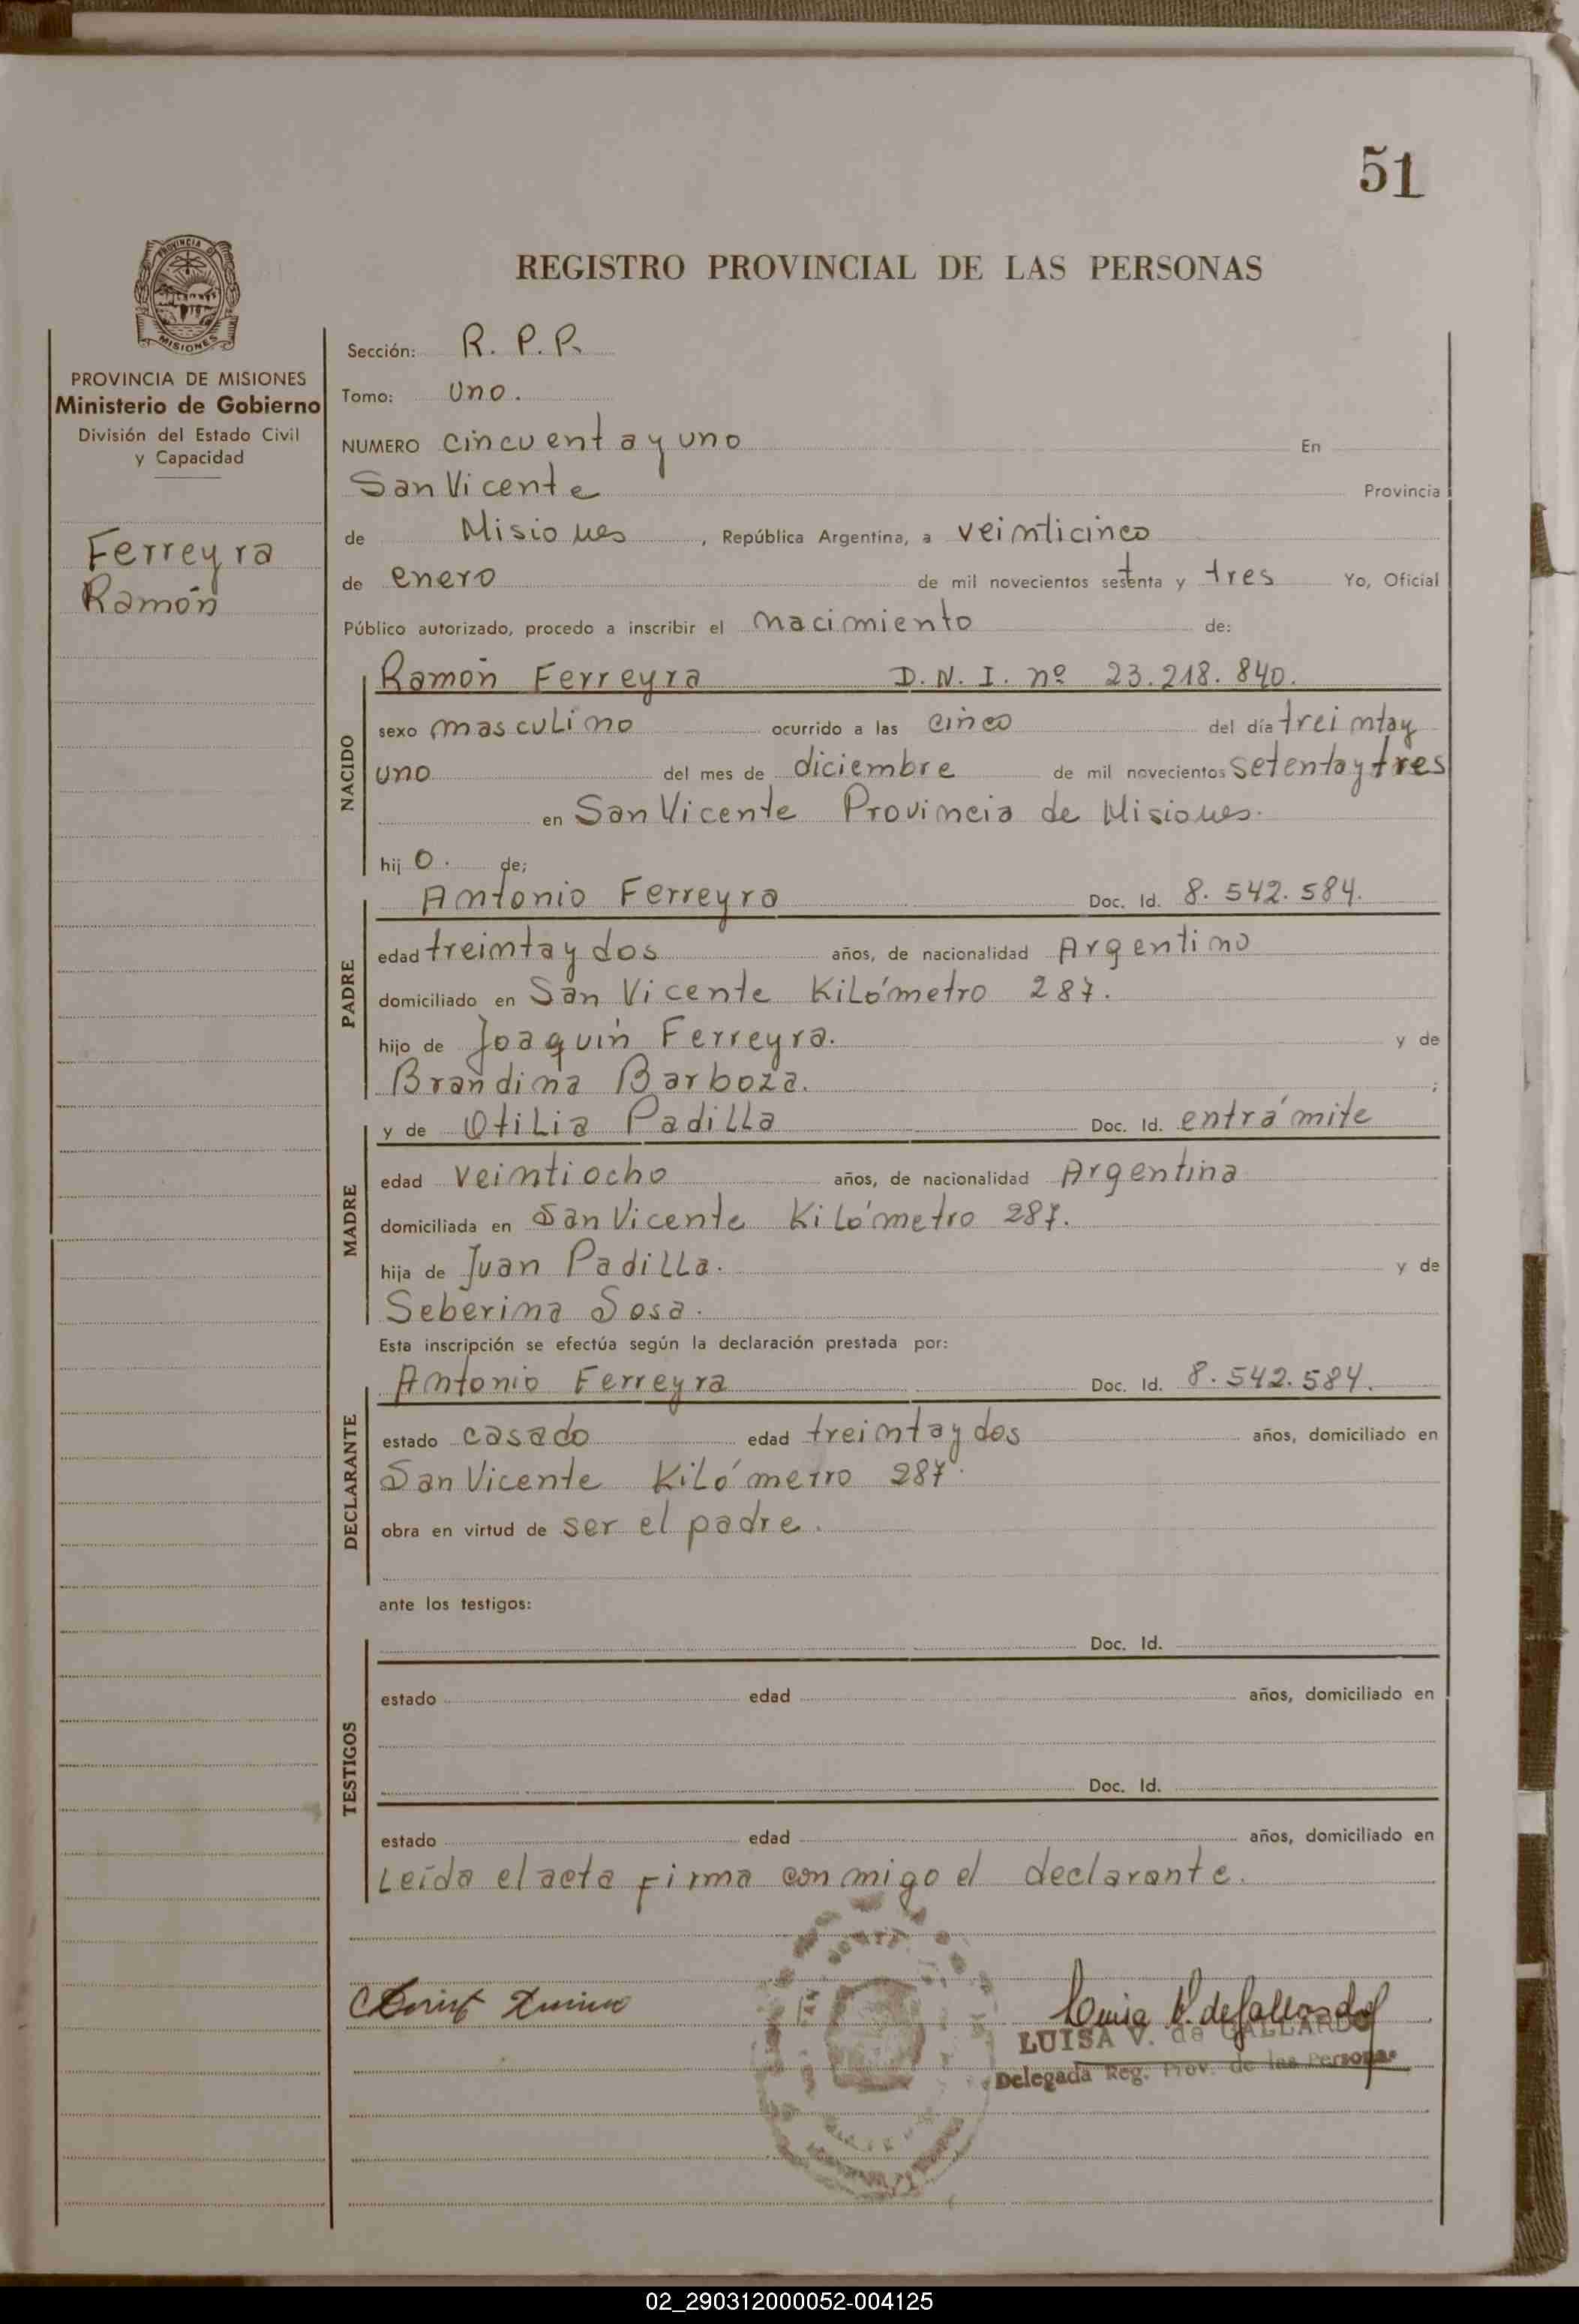 51
PROVINCIA DE
MISIONES
REGISTRO PROVINCIAL DE LAS PERSONAS
PROVINCIA DE MISIONES
Ministerio de Gobierno
División del Estado Civil
y Capacidad
Ferreyra
Ramón
Sección: R. P. P.
Tomo: Uno.
NUMERO cincuenta y uno En
San Vicente Provincia
de Misiones, República Argentina, a veinticinco
de enero de mil novecientos setenta y tres Yo, Oficial
Público autorizado, procedo a inscribir el nacimiento de:
NACIDO
Ramón Ferreyra D. N. I. nº 23.218.840.
sexo masculino ocurrido a las cinco del día treinta y
uno del mes de diciembre de mil novecientos setenta y tres
en San Vicente Provincia de Misiones.
hij o. de;
PADRE
Antonio Ferreyra Doc. Id. 8.542.584.
edad treinta y dos años, de nacionalidad Argentino
domiciliado en San Vicente Kilómetro 287.
hijo de Joaquín Ferreyra. y de
Brandina Barboza. ;
MADRE
y de Otilia Padilla Doc. Id. en trámite
edad veintiocho años, de nacionalidad Argentina
domiciliada en San Vicente Kilómetro 287.
hija de Juan Padilla. y de
Seberina Sosa.
Esta inscripción se efectúa según la declaración prestada por:
DECLARANTE
Antonio Ferreyra Doc. Id. 8.542.584.
estado casado edad treinta y dos años, domiciliado en
San Vicente Kilómetro 287.
obra en virtud de ser el padre.
ante los testigos:
TESTIGOS
Doc. Id.
estado edad años, domiciliado en
Doc. Id.
estado edad años, domiciliado en
Leída el acta firma conmigo el declarante.
Luisa V. de Gallardo
LUISA V. de GALLARDO
Delegada Reg. Prov. de las Personas
02_290312000052-004125